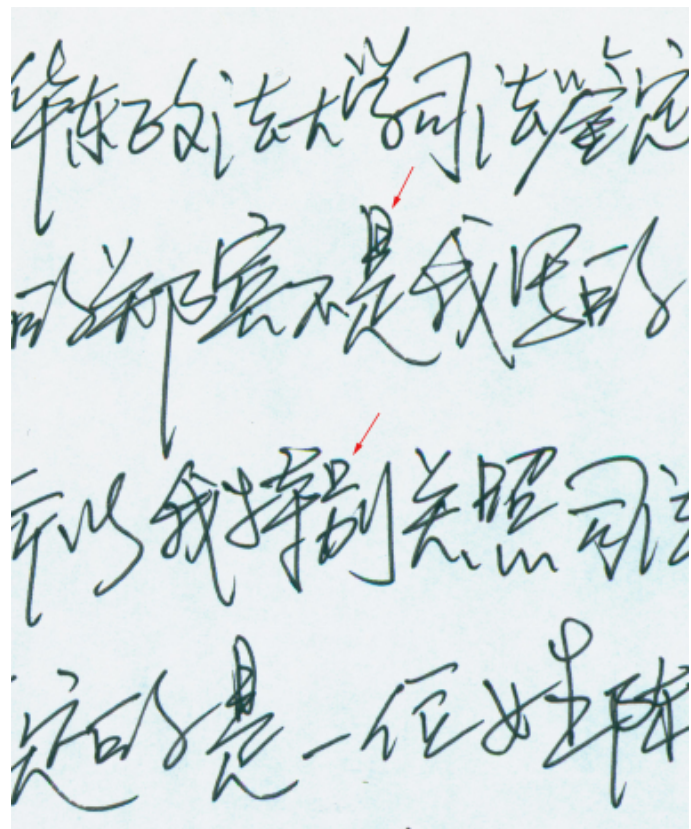 华东政法大学司法鉴定
的郑宾不是我写的
所以我特别关照司法
定的是一位姓陈